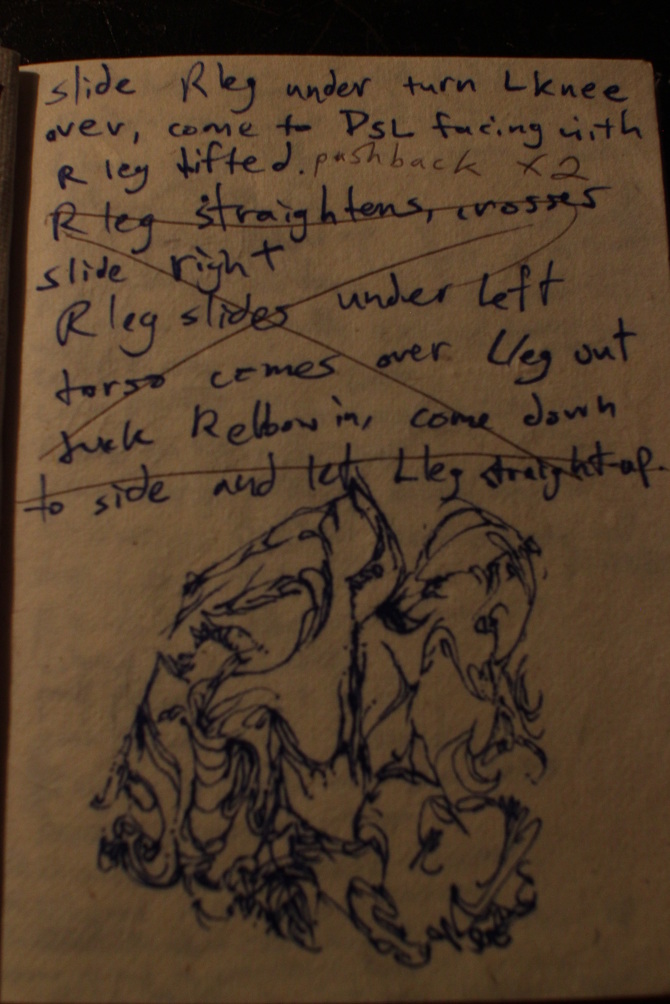 slide R leg under turn L knee
over, come to DSL facing with
R leg lifted. pushback x2
R leg straightens, crosses
slide right
R leg slides under left
torso comes over L leg out
tuck R elbow in, come down
to side and let L leg straight up.